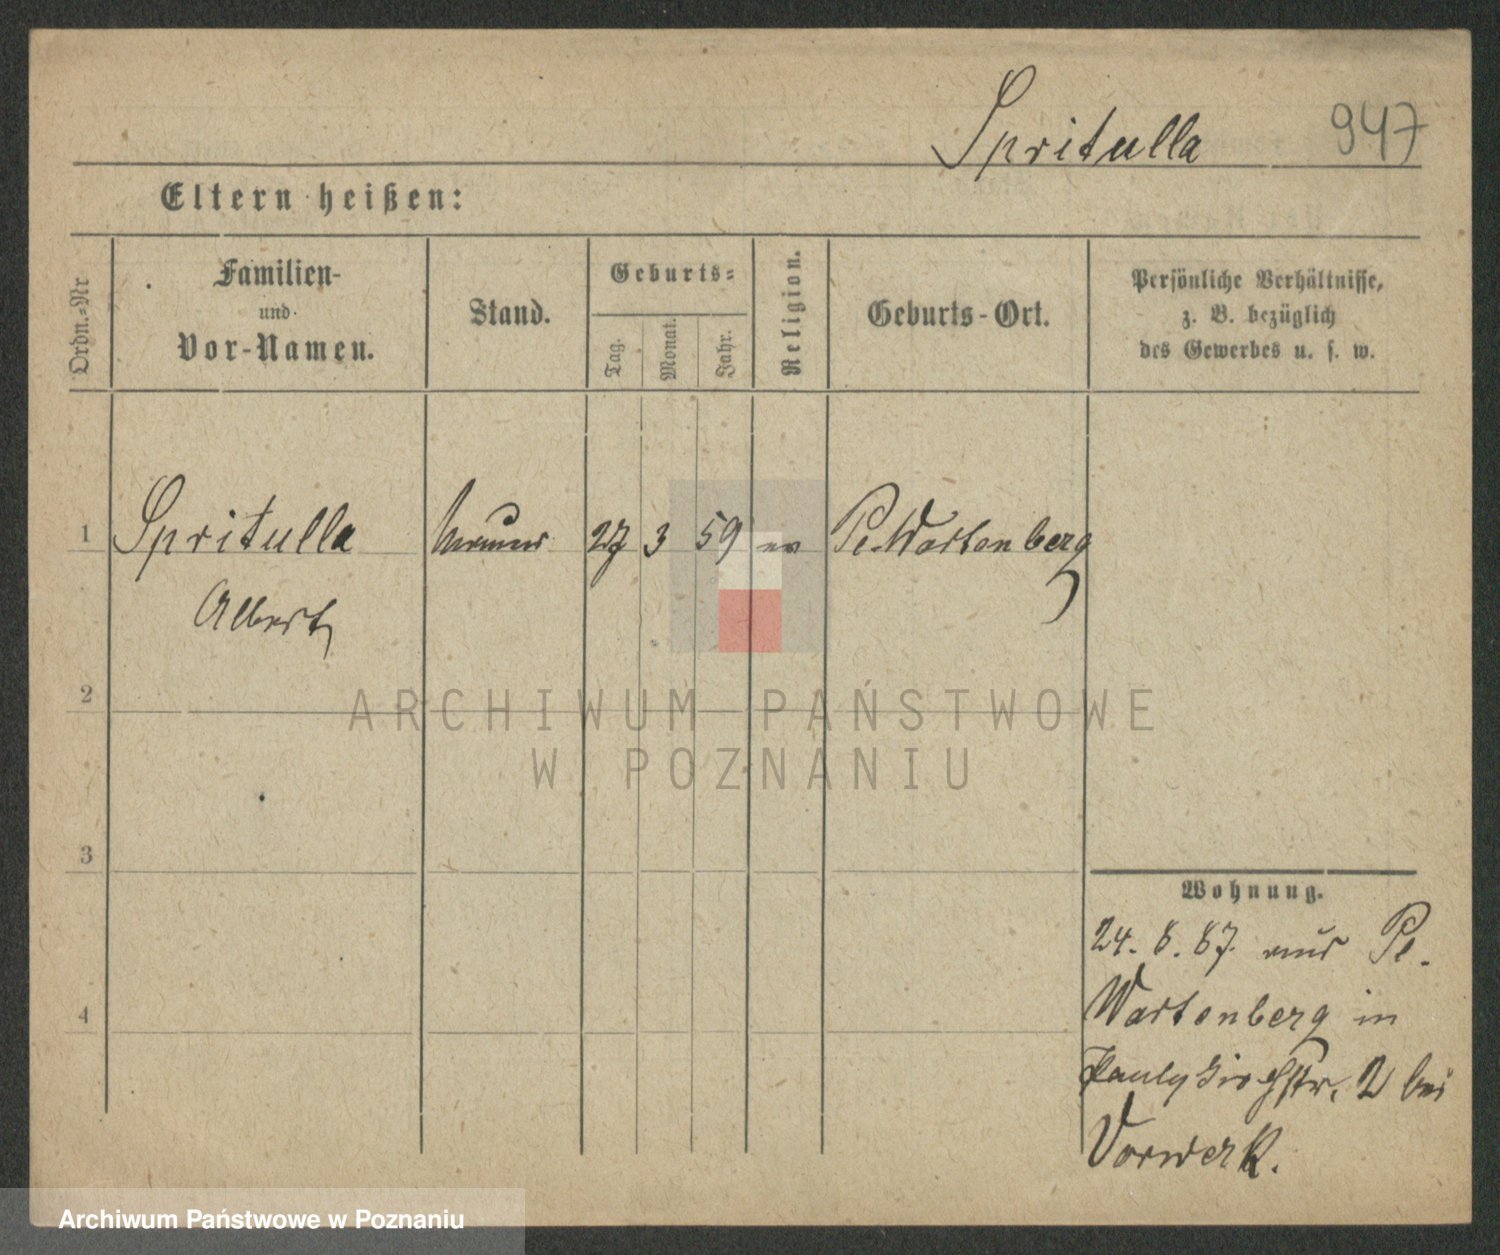 Spritulla 947
Eltern heißen:
Ordn.-Nr
Familien-
und
Vor-Namen.
Stand.
Geburts-
Tag.
Monat.
Jahr.
Religion.
Geburts-Ort.
Persönliche Verhältnisse,
z. B. bezüglich
des Gewerbes u. s. w.
1 Spritulla 27 3 59 ev Pl. Wartenberg
Albert
2
3
4
Wohnung.
24. 8. 87. aus Pl.
Wartenberg in
Paulykirchstr. 2 bei
Vorwerk.
ARCHIWUM PAŃSTWOWE
W POZNANIU
Archiwum Państwowe w Poznaniu